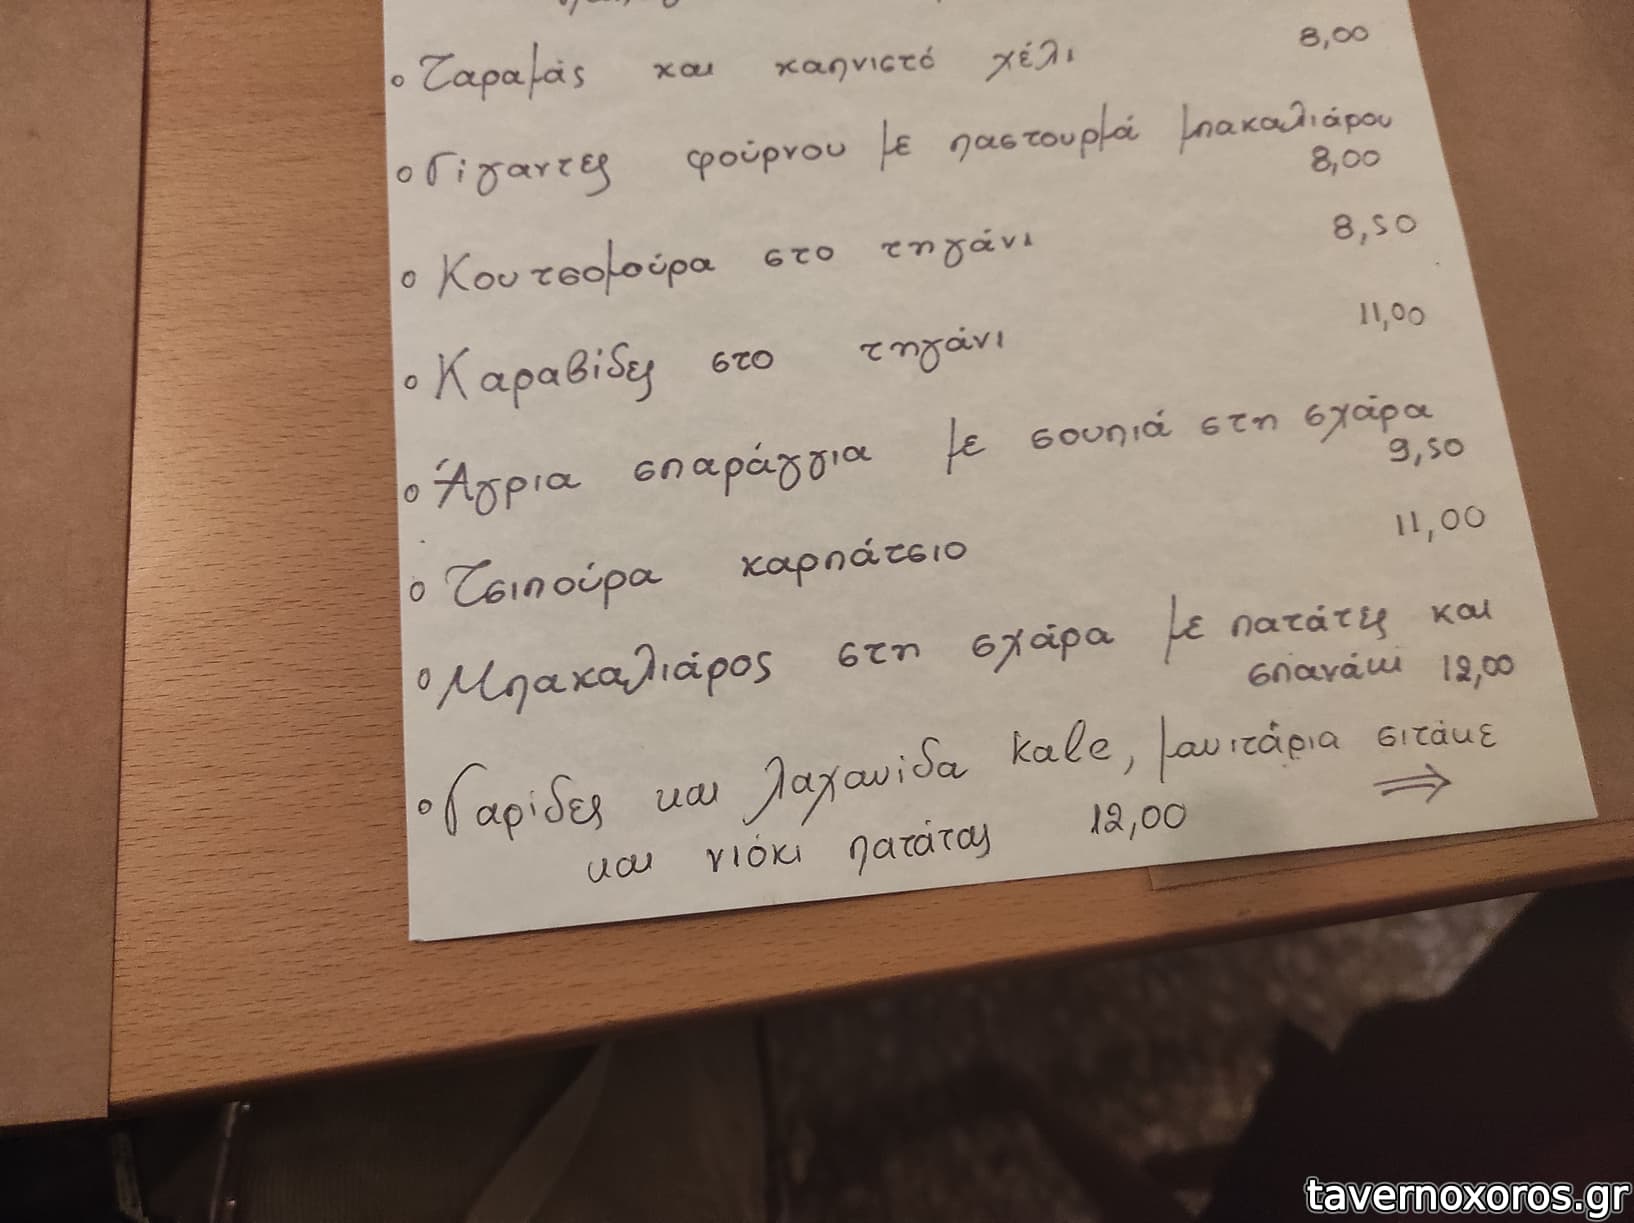 • Ταραμάς και καπνιστό χέλι 8,00
• Γίγαντες φούρνου με παστουρμά μπακαλιάρου
8,00
• Κουτσομούρα στο τηγάνι 8,50
• Καραβίδες στο τηγάνι 11,00
• Άγρια σπαράγγια με σουπιά στη σχάρα
9,50
• Τσιπούρα καρπάτσιο 11,00
• Μπακαλιάρος στη σχάρα με πατάτες και
σπανάκι 12,00
• Γαρίδες και λαχανίδα kale, μανιτάρια σιτάκε
⇒
και νιόκι πατάτας 12,00
tavernoxoros.gr